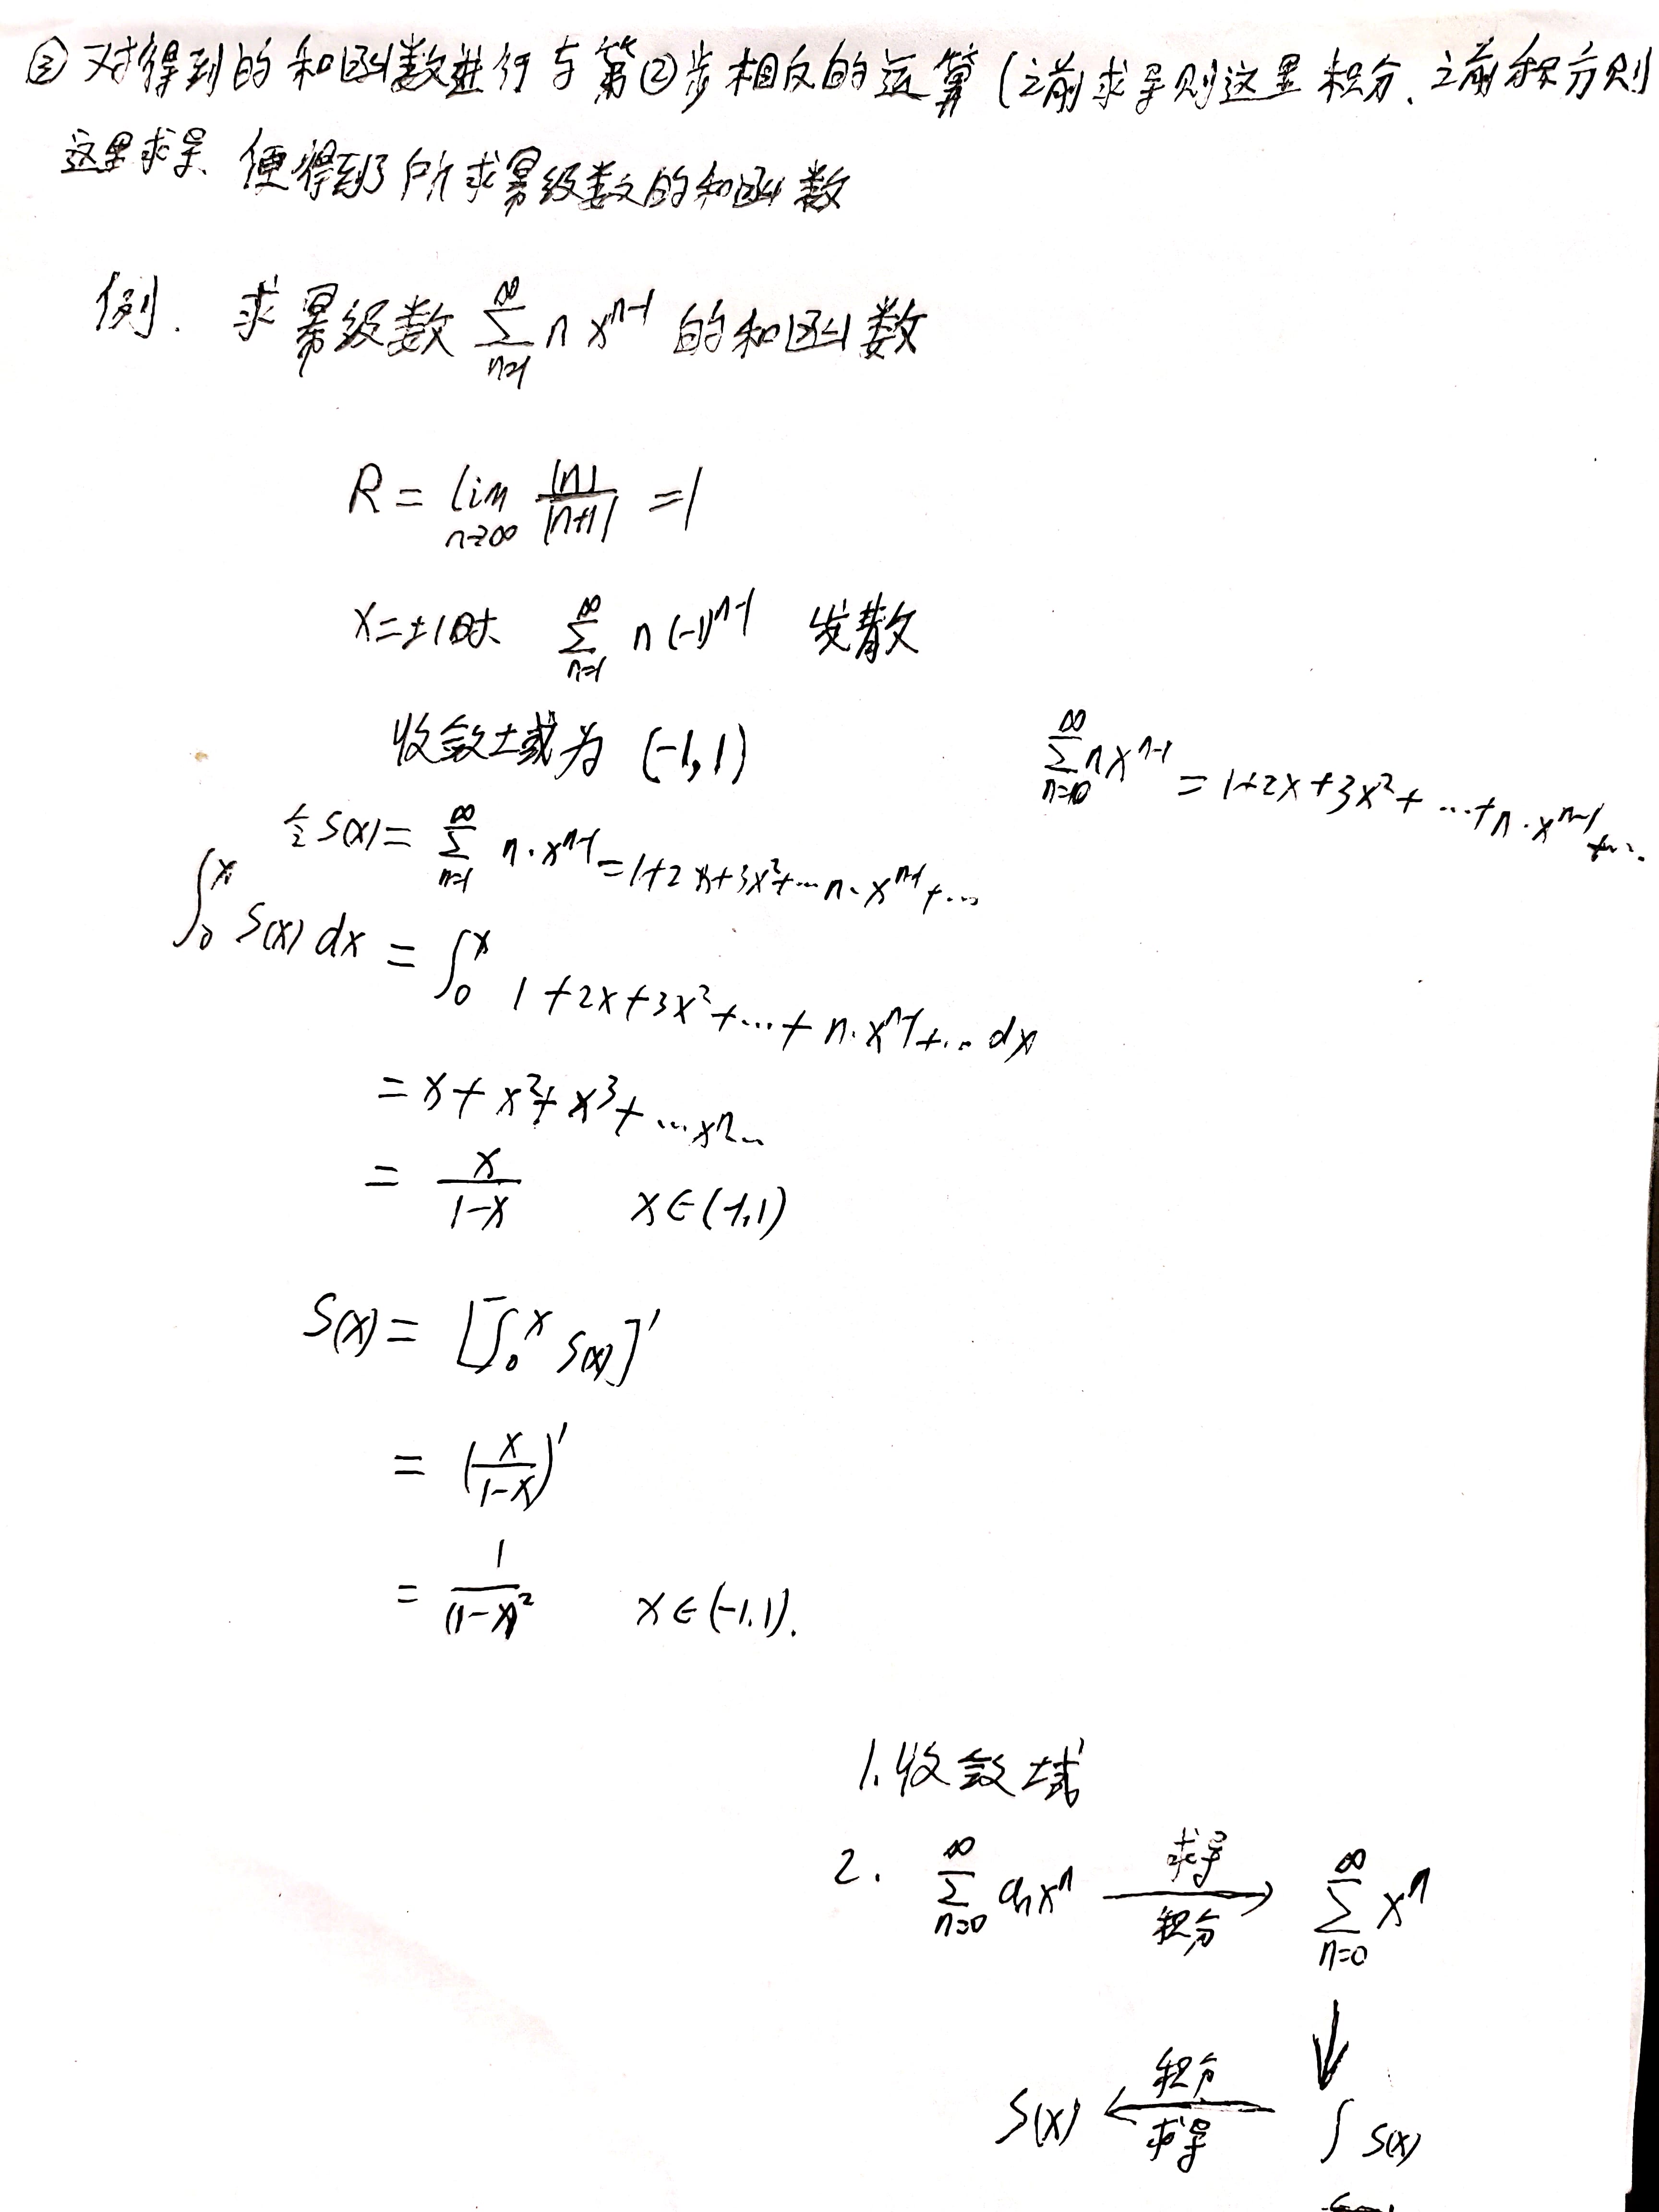 ③对得到的和函数进行与第②步相反的运算(之前求导则这里积分、之前积分则
这里求导、便得到了所求幂级数的和函数
例. 求幂级数 ∑_{n=1}^{∞} n x^{n-1} 的和函数
R = lim_{n→∞} |n|/|n+1| = 1
x=±1时 ∑_{n=1}^{∞} n(-1)^{n-1} 发散
收敛域为 (-1,1)
∑_{n=0}^{∞} n x^{n-1} = 1+2x+3x²+…+n·x^{n-1}+…
令S(x) = ∑_{n=1}^{∞} n·x^{n-1} = 1+2x+3x²+…n·x^{n-1}+…
∫_0^x S(x) dx = ∫_0^x 1+2x+3x²+…+n·x^{n-1}+… dx
= x+x²+x³+…x^n…
= x/(1-x) x∈(-1,1)
S(x) = [∫_0^x S(x)]'
= (x/(1-x))'
= 1/(1-x)² x∈(-1,1).
1.收敛域
2. ∑_{n=0}^{∞} a_n x^n 求导 → 积分 ∑_{n=0}^{∞} x^n
↓
S(x) 积分 ← 求导 ∫ S(x)